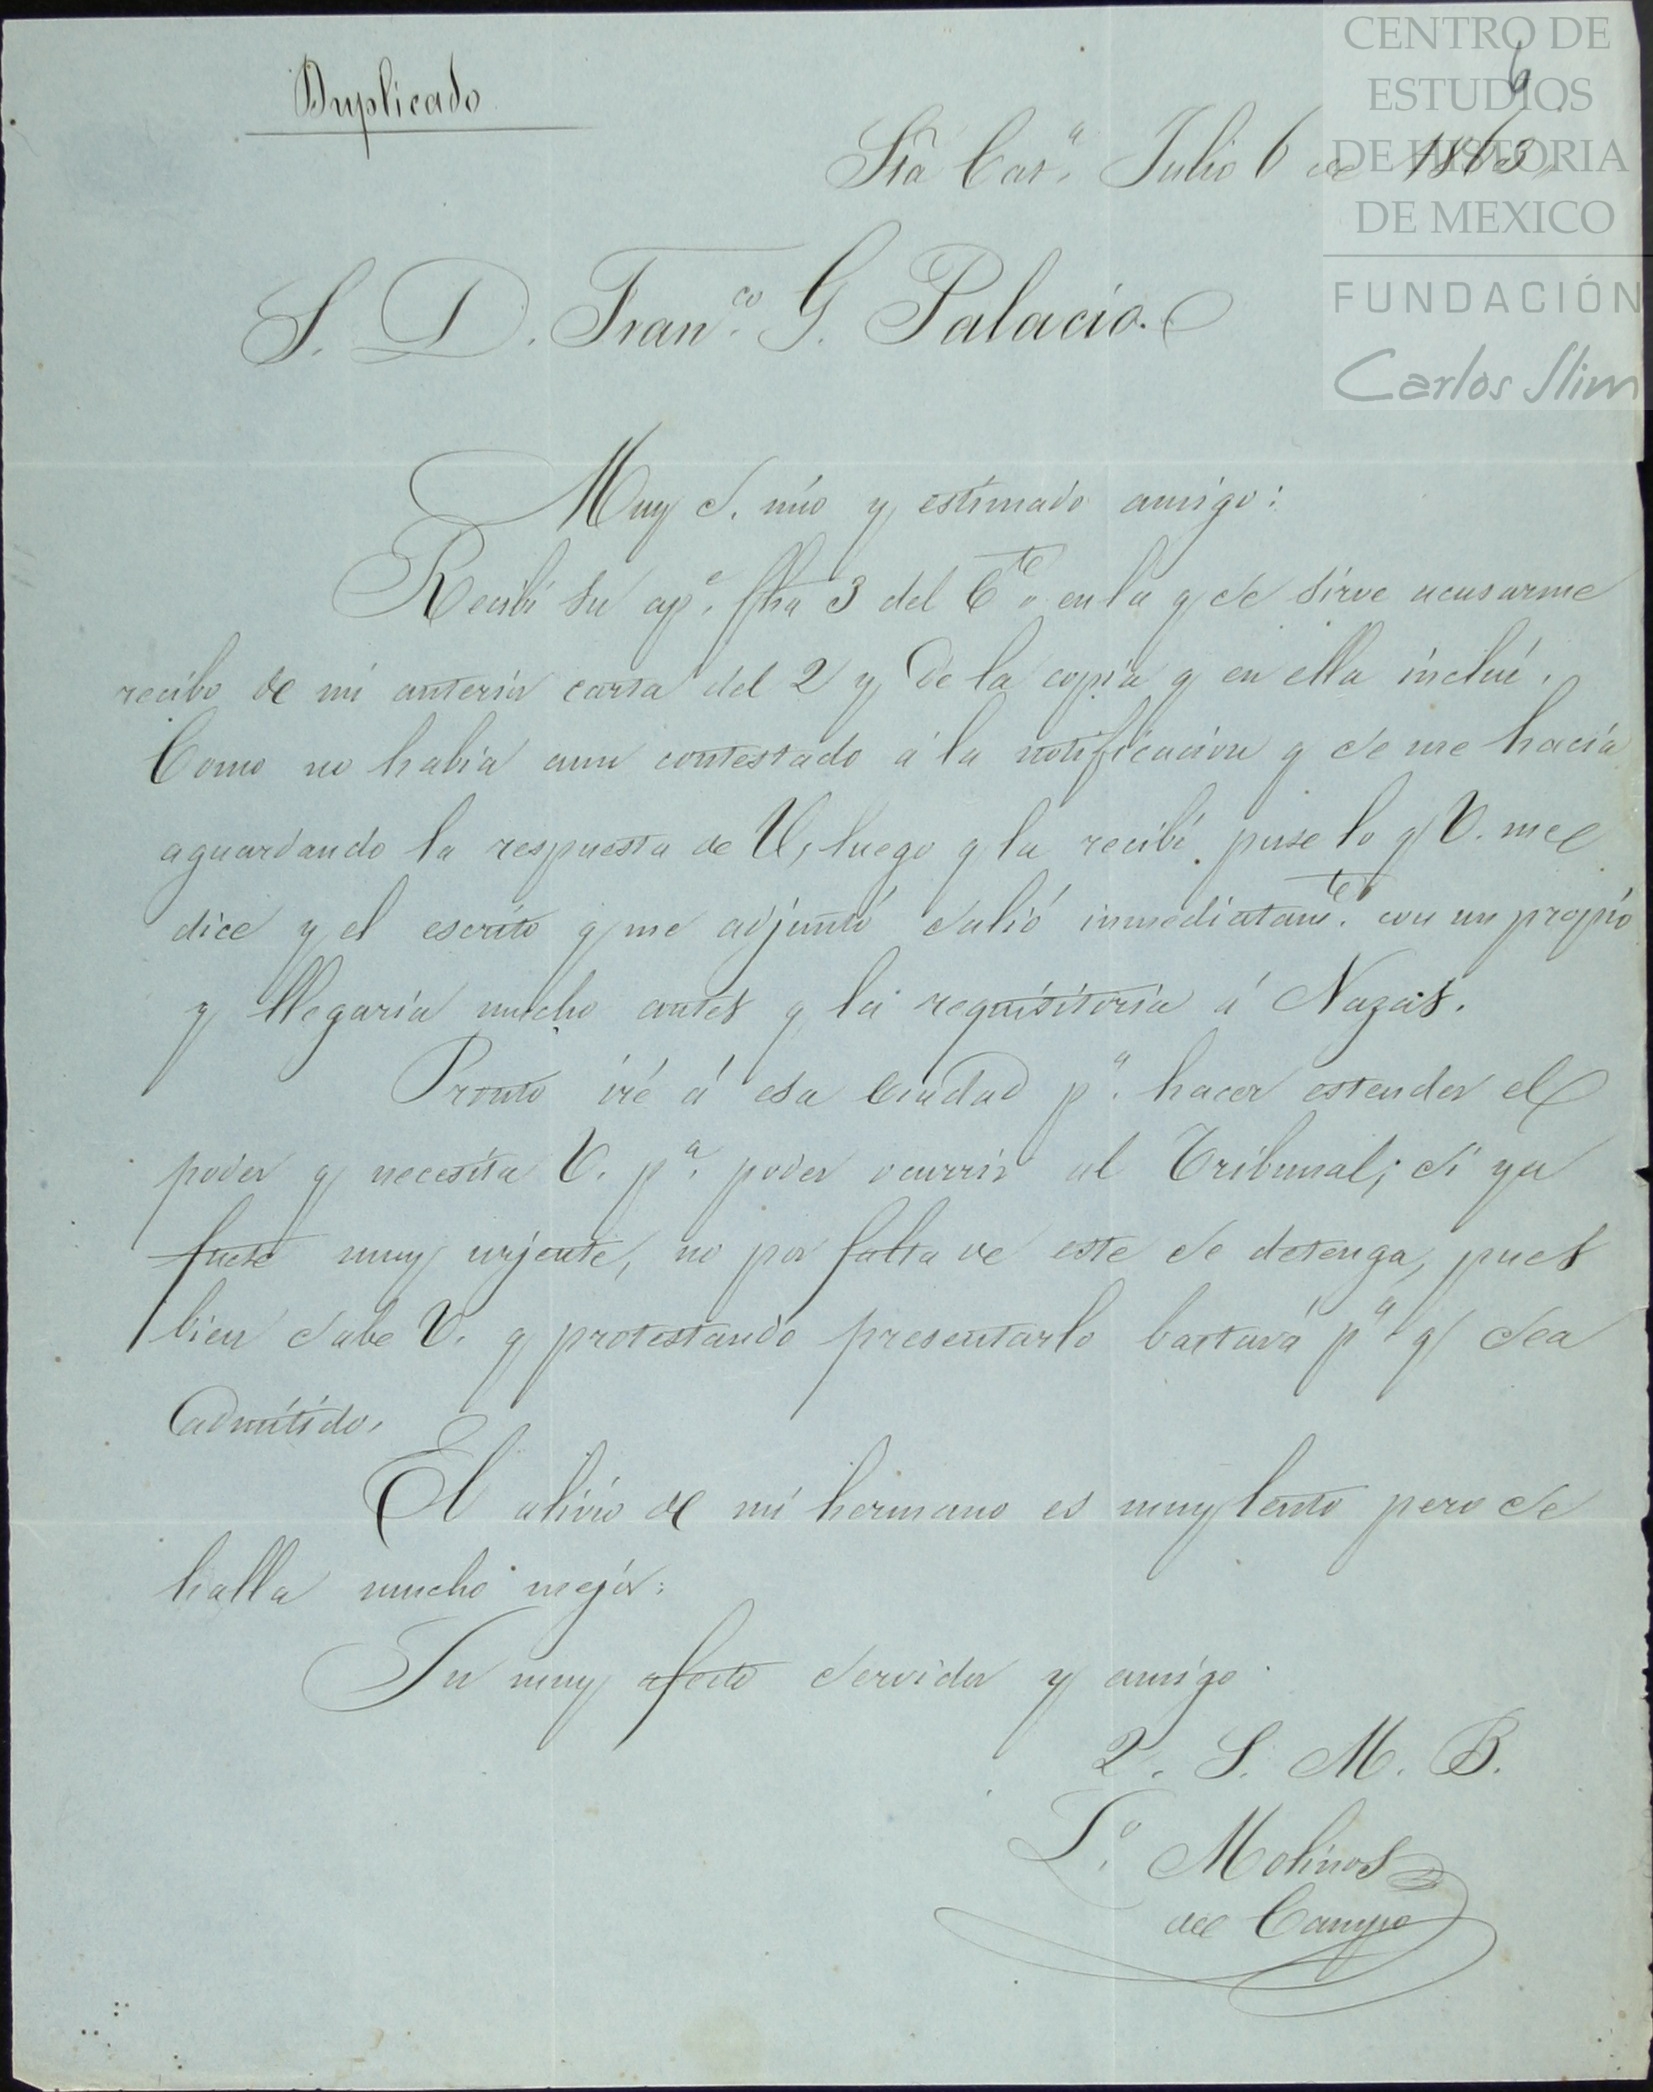 CENTRO DE
ESTUDIOS
DE HISTORIA
DE MEXICO
FUNDACIÓN
Carlos Slim
6
Duplicado
Sta Cat.a Julio 6 de 1863.
S. D. Fran.co G. Palacio.
Muy S. mio y estimado amigo:
Recibi su ap.e fha 3 del C.te en la q se sirve acusarme
recibo de mi anterior carta del 2 y de la copia q en ella incluí.
Como no habia aun contestado á la notificacion q se me hacía
aguardando la respuesta de V, luego q la recibí puse lo q V. me
dice y el escrito q me adjuntó salió inmediatam.te con un propio
y llegaría mucho antes q la requisitoria á Nazas.
Pronto iré á esa Ciudad p.a hacer estender el
poder q necesita V. p.a poder ocurrir al Tribunal; si ya
fuese muy urjente, no por falta de este se detenga, pues
bien sabe V. q protestando presentarlo bastará p.a q sea
admitido.
El alivio de mi hermano es muy lento pero se
halla mucho mejór:
Su muy afecto servidor y amigo
Q. S. M. B.
Molinos
del Campo